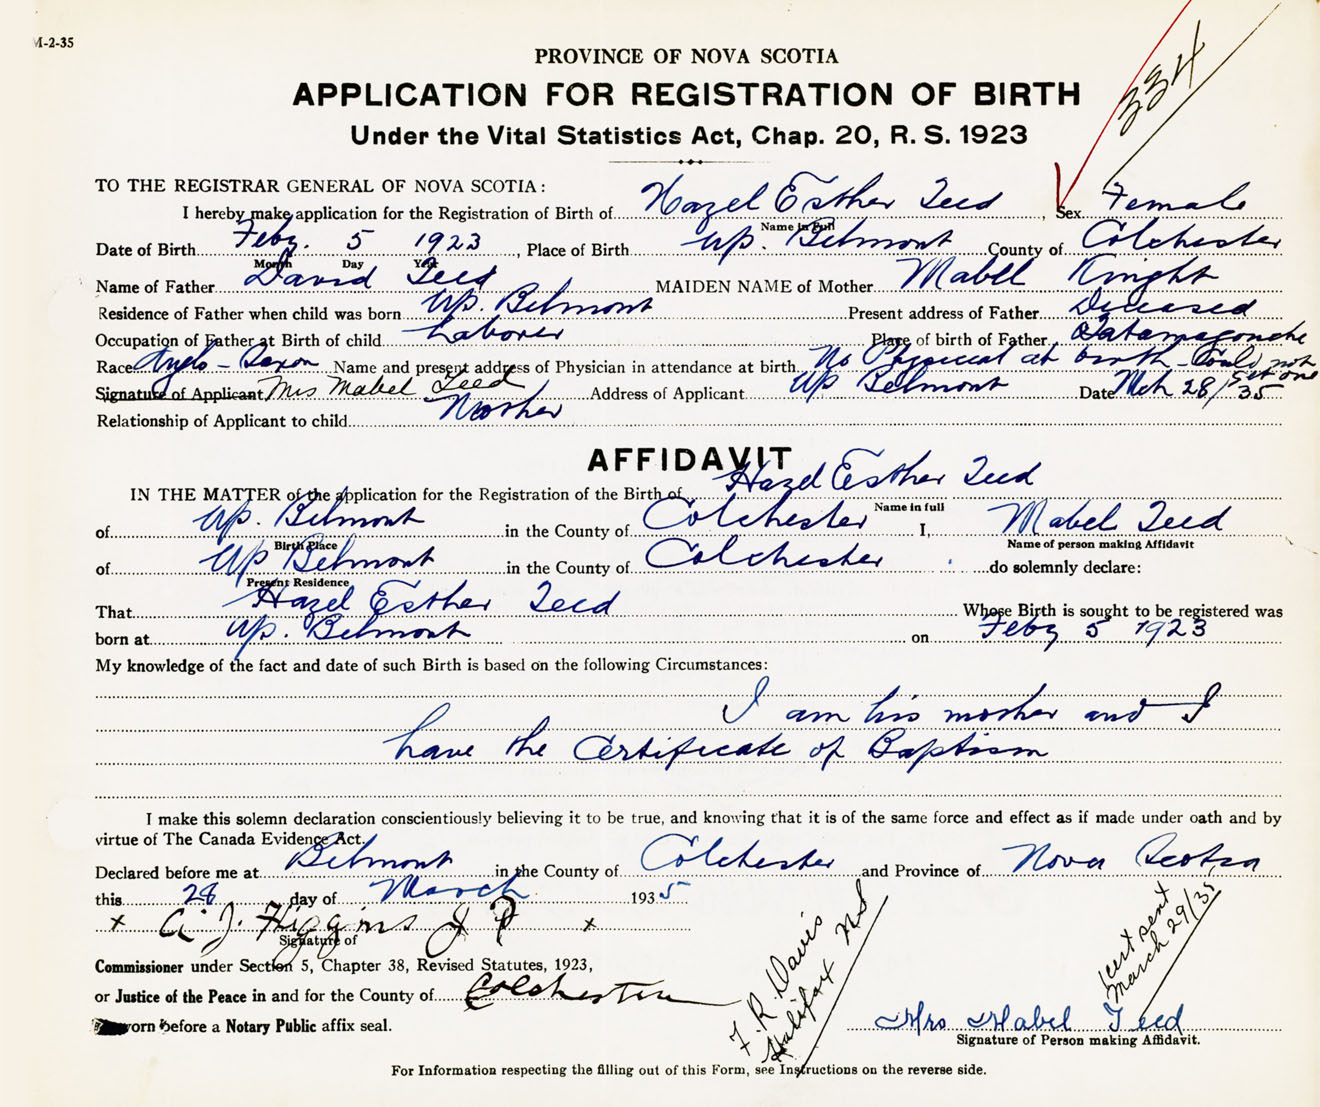 M-2-35
334
PROVINCE OF NOVA SCOTIA
APPLICATION FOR REGISTRATION OF BIRTH
Under the Vital Statistics Act, Chap. 20, R. S. 1923
TO THE REGISTRAR GENERAL OF NOVA SCOTIA:
I hereby make application for the Registration of Birth of Hazel Esther Teed, Sex Female
Name in Full
Date of Birth Feby. 5 1923, Place of Birth Up. Belmont County of Colchester
Month Day Year
Name of Father David Teed MAIDEN NAME of Mother Mabel Knight
Residence of Father when child was born Up. Belmont Present address of Father Deceased
Occupation of Father at Birth of child Laborer Place of birth of Father Tatamagouche
Race Anglo-Saxon Name and present address of Physician in attendance at birth No Physician at birth - Could not get one
Signature of Applicant Mrs Mabel Teed Address of Applicant Up Belmont Date Mch 28/35
Relationship of Applicant to child Mother
AFFIDAVIT
IN THE MATTER of the application for the Registration of the Birth of Hazel Esther Teed
Name in full
of Up. Belmont in the County of Colchester I, Mabel Teed
Birth Place Name of person making Affidavit
of Up Belmont in the County of Colchester do solemnly declare:
Present Residence
That Hazel Esther Teed Whose Birth is sought to be registered was
born at Up. Belmont on Feby 5 1923
My knowledge of the fact and date of such Birth is based on the following Circumstances:
I am his mother and I
have the Certificate of Baptism
I make this solemn declaration conscientiously believing it to be true, and knowing that it is of the same force and effect as if made under oath and by
virtue of The Canada Evidence Act.
Declared before me at Belmont in the County of Colchester and Province of Nova Scotia
this 28 day of March 1935
x A. J. Higgins J P x
Signature of
Commissioner under Section 5, Chapter 38, Revised Statutes, 1923,
or Justice of the Peace in and for the County of Colchester
worn before a Notary Public affix seal.
F. R. Davis
Halifax NS
cert sent
March 29/35
Mrs Mabel Teed
Signature of Person making Affidavit.
For Information respecting the filling out of this Form, see Instructions on the reverse side.